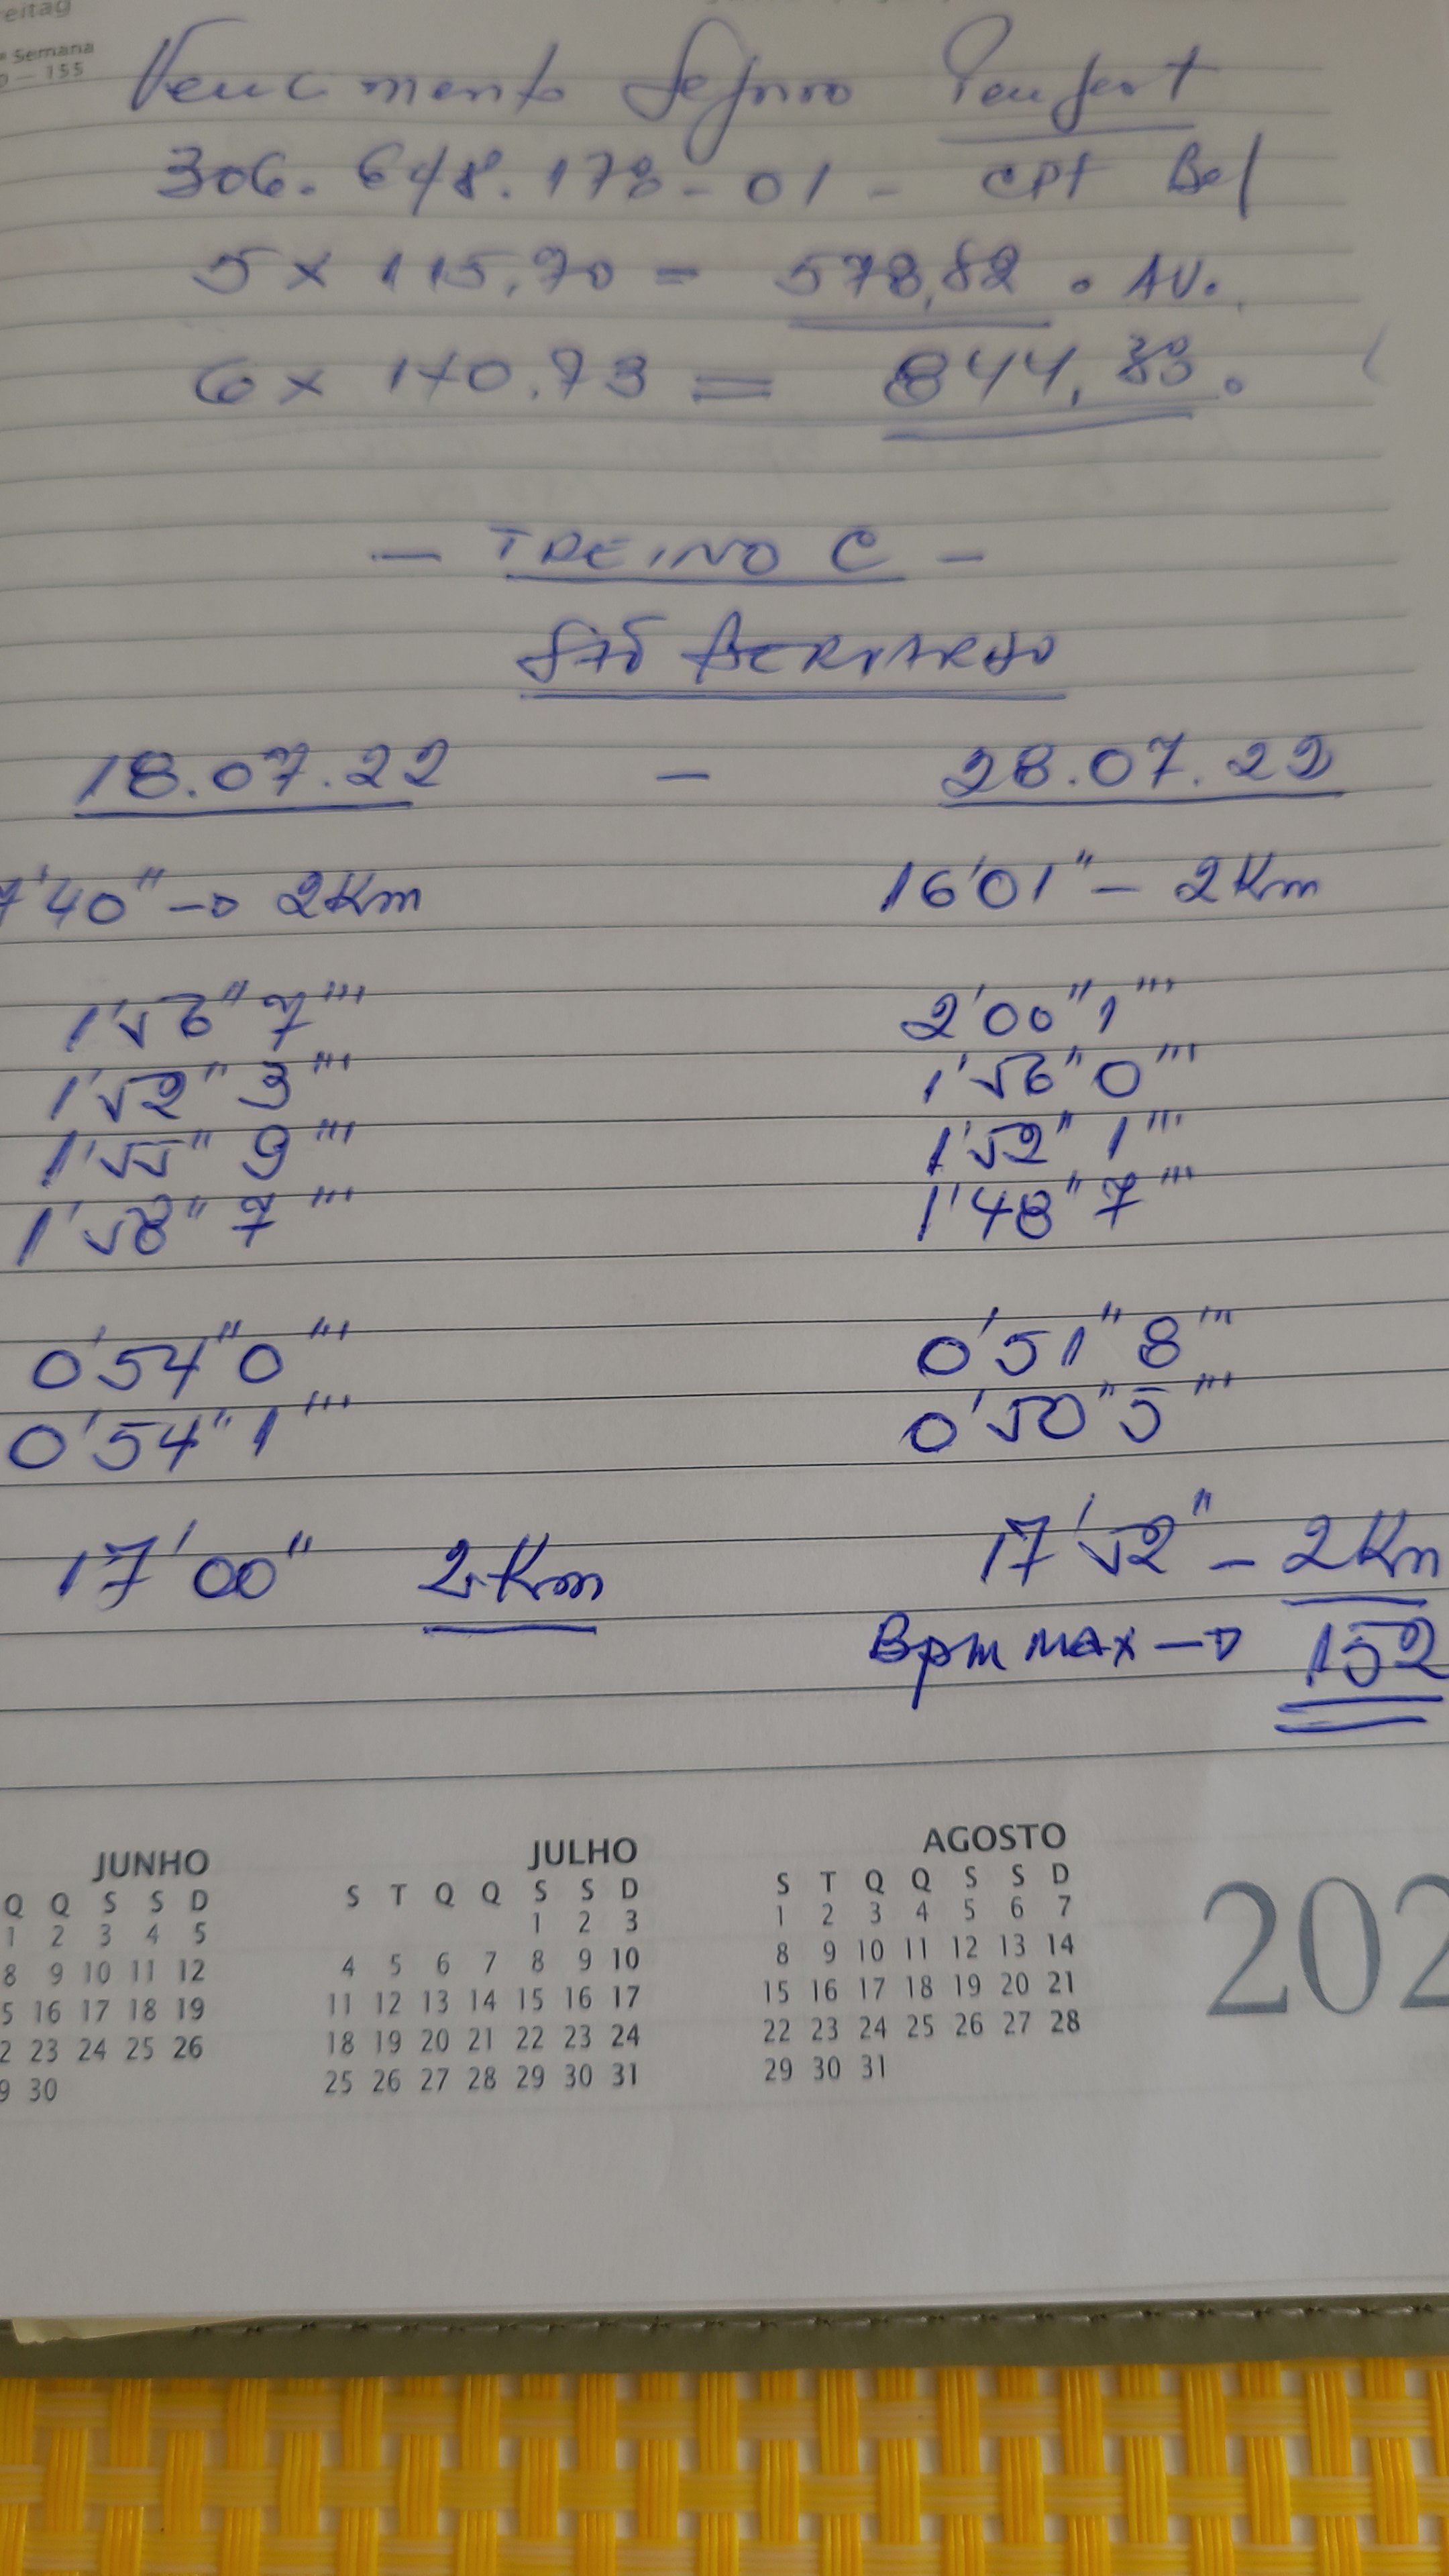 reitag
Semana
— 155
Vencimento Seguro Peugeot
306.648.178-01 - CPF Bel
5 x 115,70 = 578,82 . AV.
6 x 140.73 = 844,
— TREINO C —
SÃO BERNARDO
18.07.22 — 28.07.22
7'40" → 2Km 16'01" — 2Km
1'56" 7''' 2'00" 1'''
1'52" 3''' 1'56" 0'''
1'55" 9''' 1'52" 1'''
1'58" 7''' 1'48" 7'''
0'54" 0''' 0'51" 8'''
0'54" 1''' 0'50" 5'''
17'00" 2Km 17'52" — 2Km
Bpm MAX → 152
JUNHO JULHO AGOSTO
Q Q S S D S T Q Q S S D S T Q Q S S D
1 2 3 4 5 1 2 3 1 2 3 4 5 6 7
8 9 10 11 12 4 5 6 7 8 9 10 8 9 10 11 12 13 14
5 16 17 18 19 11 12 13 14 15 16 17 15 16 17 18 19 20 21
2 23 24 25 26 18 19 20 21 22 23 24 22 23 24 25 26 27 28
9 30 25 26 27 28 29 30 31 29 30 31
202